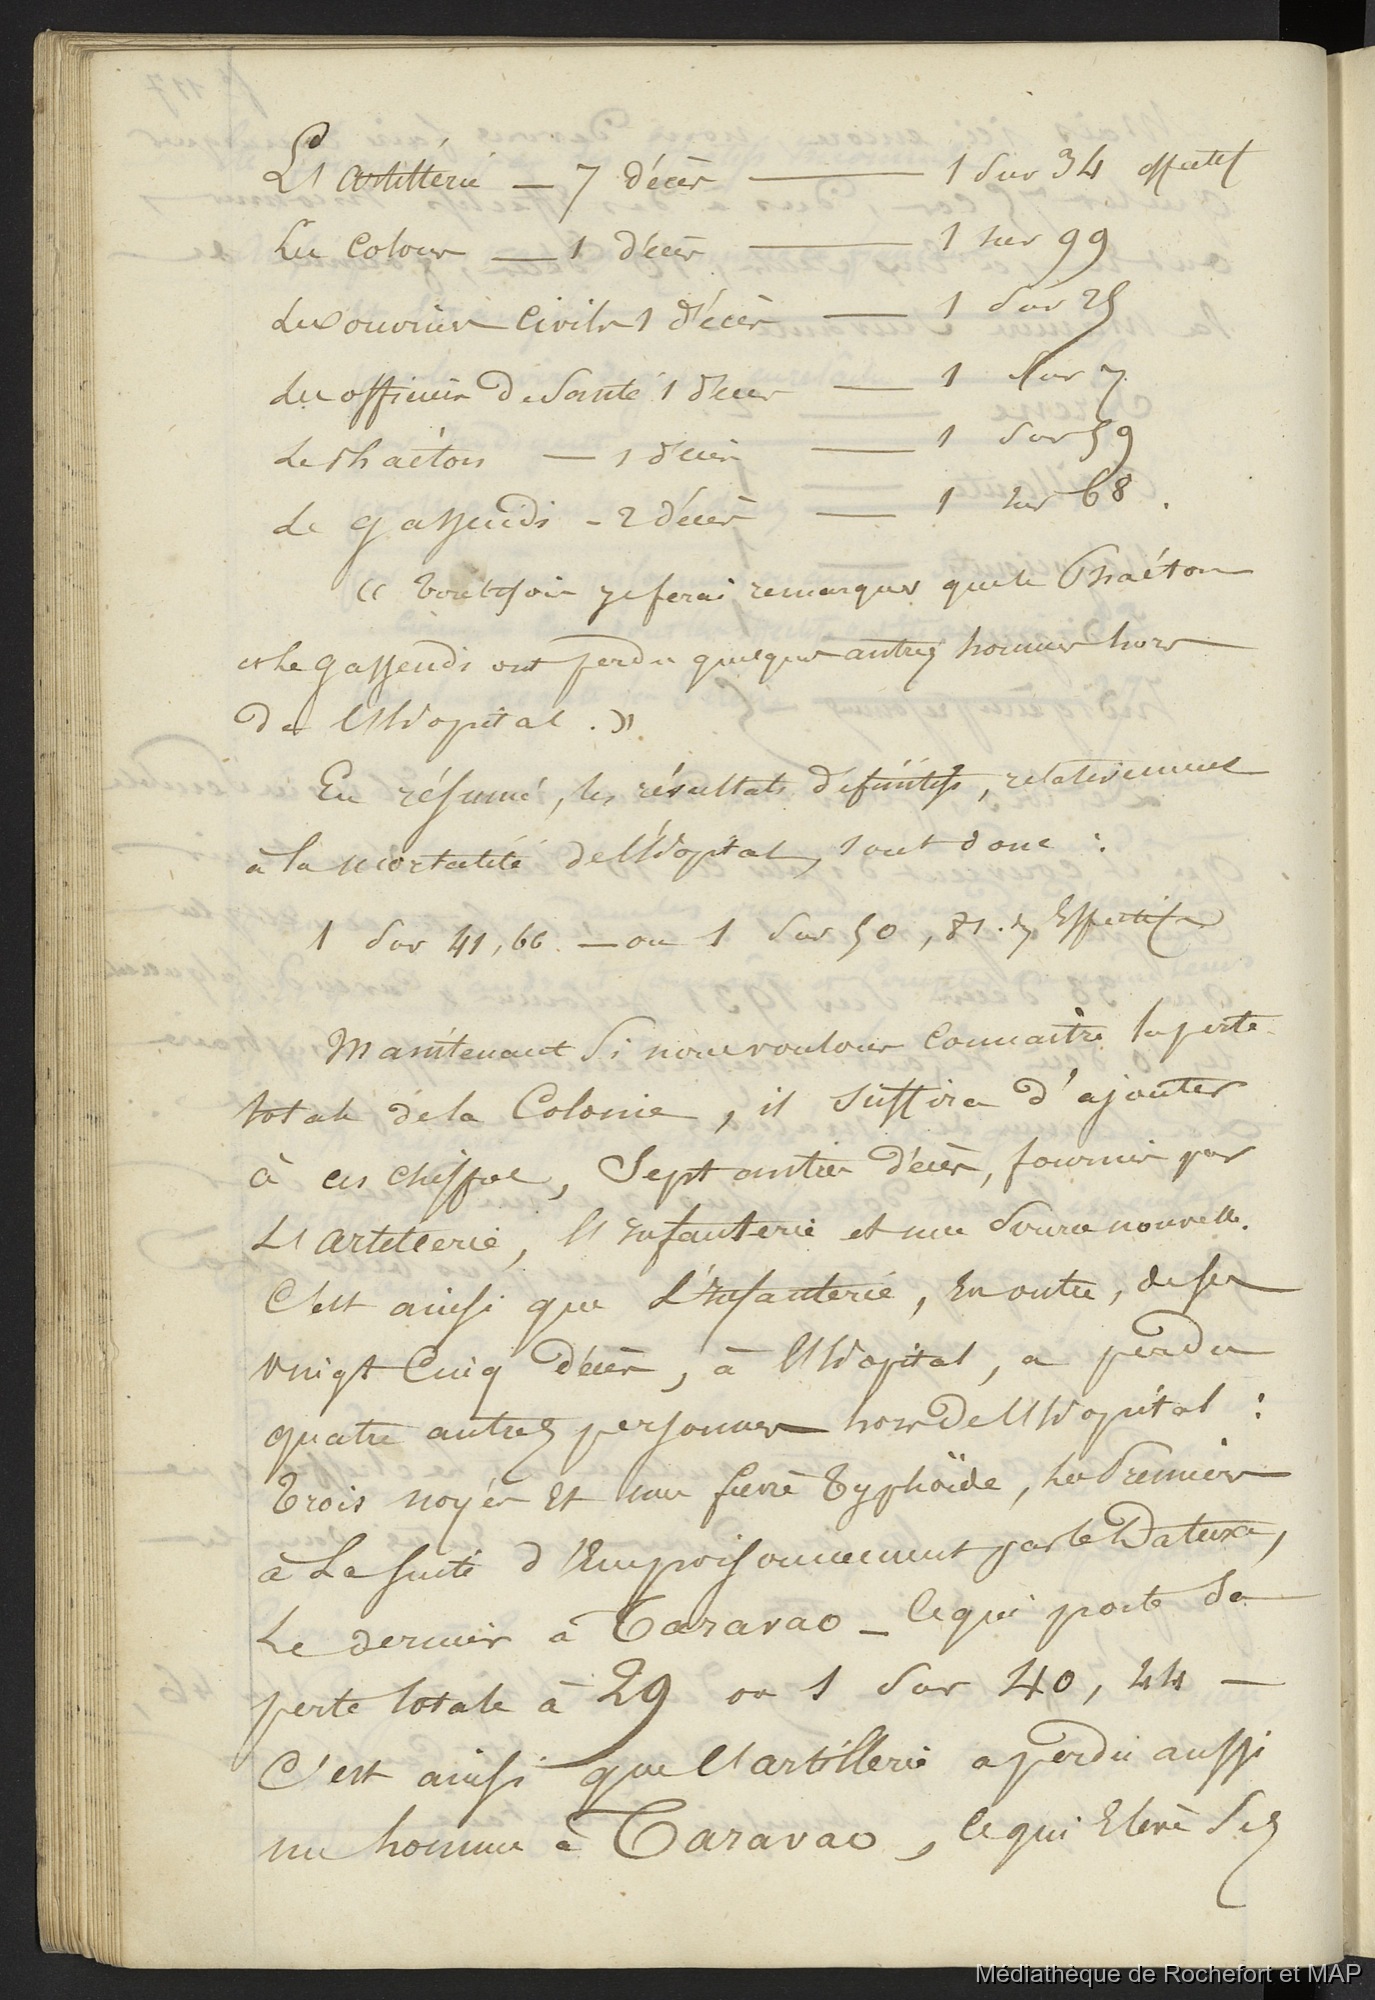 L'artillerie — 7 décès — 1 sur 34 effectif
Les Colons — 1 décès — 1 sur 99
Les ouvriers Civils 1 décès — 1 sur 25
Les officiers De Santé 1 décès — 1 sur 7
Le Phaéton — 1 décès — 1 sur 59
Le gassendi - 2 décès — 1 sur 68.
« Toutefois je ferai remarquer que le Phaéton
et le gassendi ont perdu quelques autres hommes hors
De l'Hopital. »
En résumé, les résultats définitifs, relativement
à la mortalité de l'Hopital, sont donc :
1 sur 41,66 — ou 1 sur 50,81. Effectifs
Maintenant Si nous voulons Connaitre la perte
totale de la Colonie, il suffira d'ajouter
à ces chiffres, Sept autres décès, fournis par
L'artillerie, l'Infanterie et une Source nouvelle.
C'est ainsi que L'Infanterie, En outre, de ses
vingt Cinq décès, à l'Hopital, a perdu
quatre autres personnes hors De l'Hopital :
Trois noyés Et une fievre Typhoïde, Les Premiers
à La suite d'Empoisonnement par le Datura,
Le dernier à Taravao — Ce qui porte Sa
perte totale à 29 ou 1 sur 40,44 —
C'est ainsi que l'artillerie a perdu aussi
un homme à Taravao, Ce qui Elève Ses
Médiathèque de Rochefort et MAP